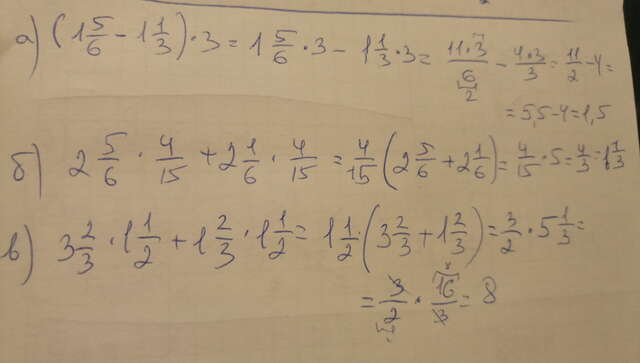 а) (1 5/6 - 1 1/3) · 3 = 1 5/6 · 3 - 1 1/3 · 3 = 11·3/6 - 4·3/3 = 11/2 - 4 =
= 5,5 - 4 = 1,5
б) 2 5/6 · 4/15 + 2 1/6 · 4/15 = 4/15 (2 5/6 + 2 1/6) = 4/15 · 5 = 4/3 = 1 1/3
в) 3 2/3 · 1 1/2 + 1 2/3 · 1 1/2 = 1 1/2 · (3 2/3 + 1 2/3) = 3/2 · 5 1/3 =
= 3/2 · 16/3 = 8